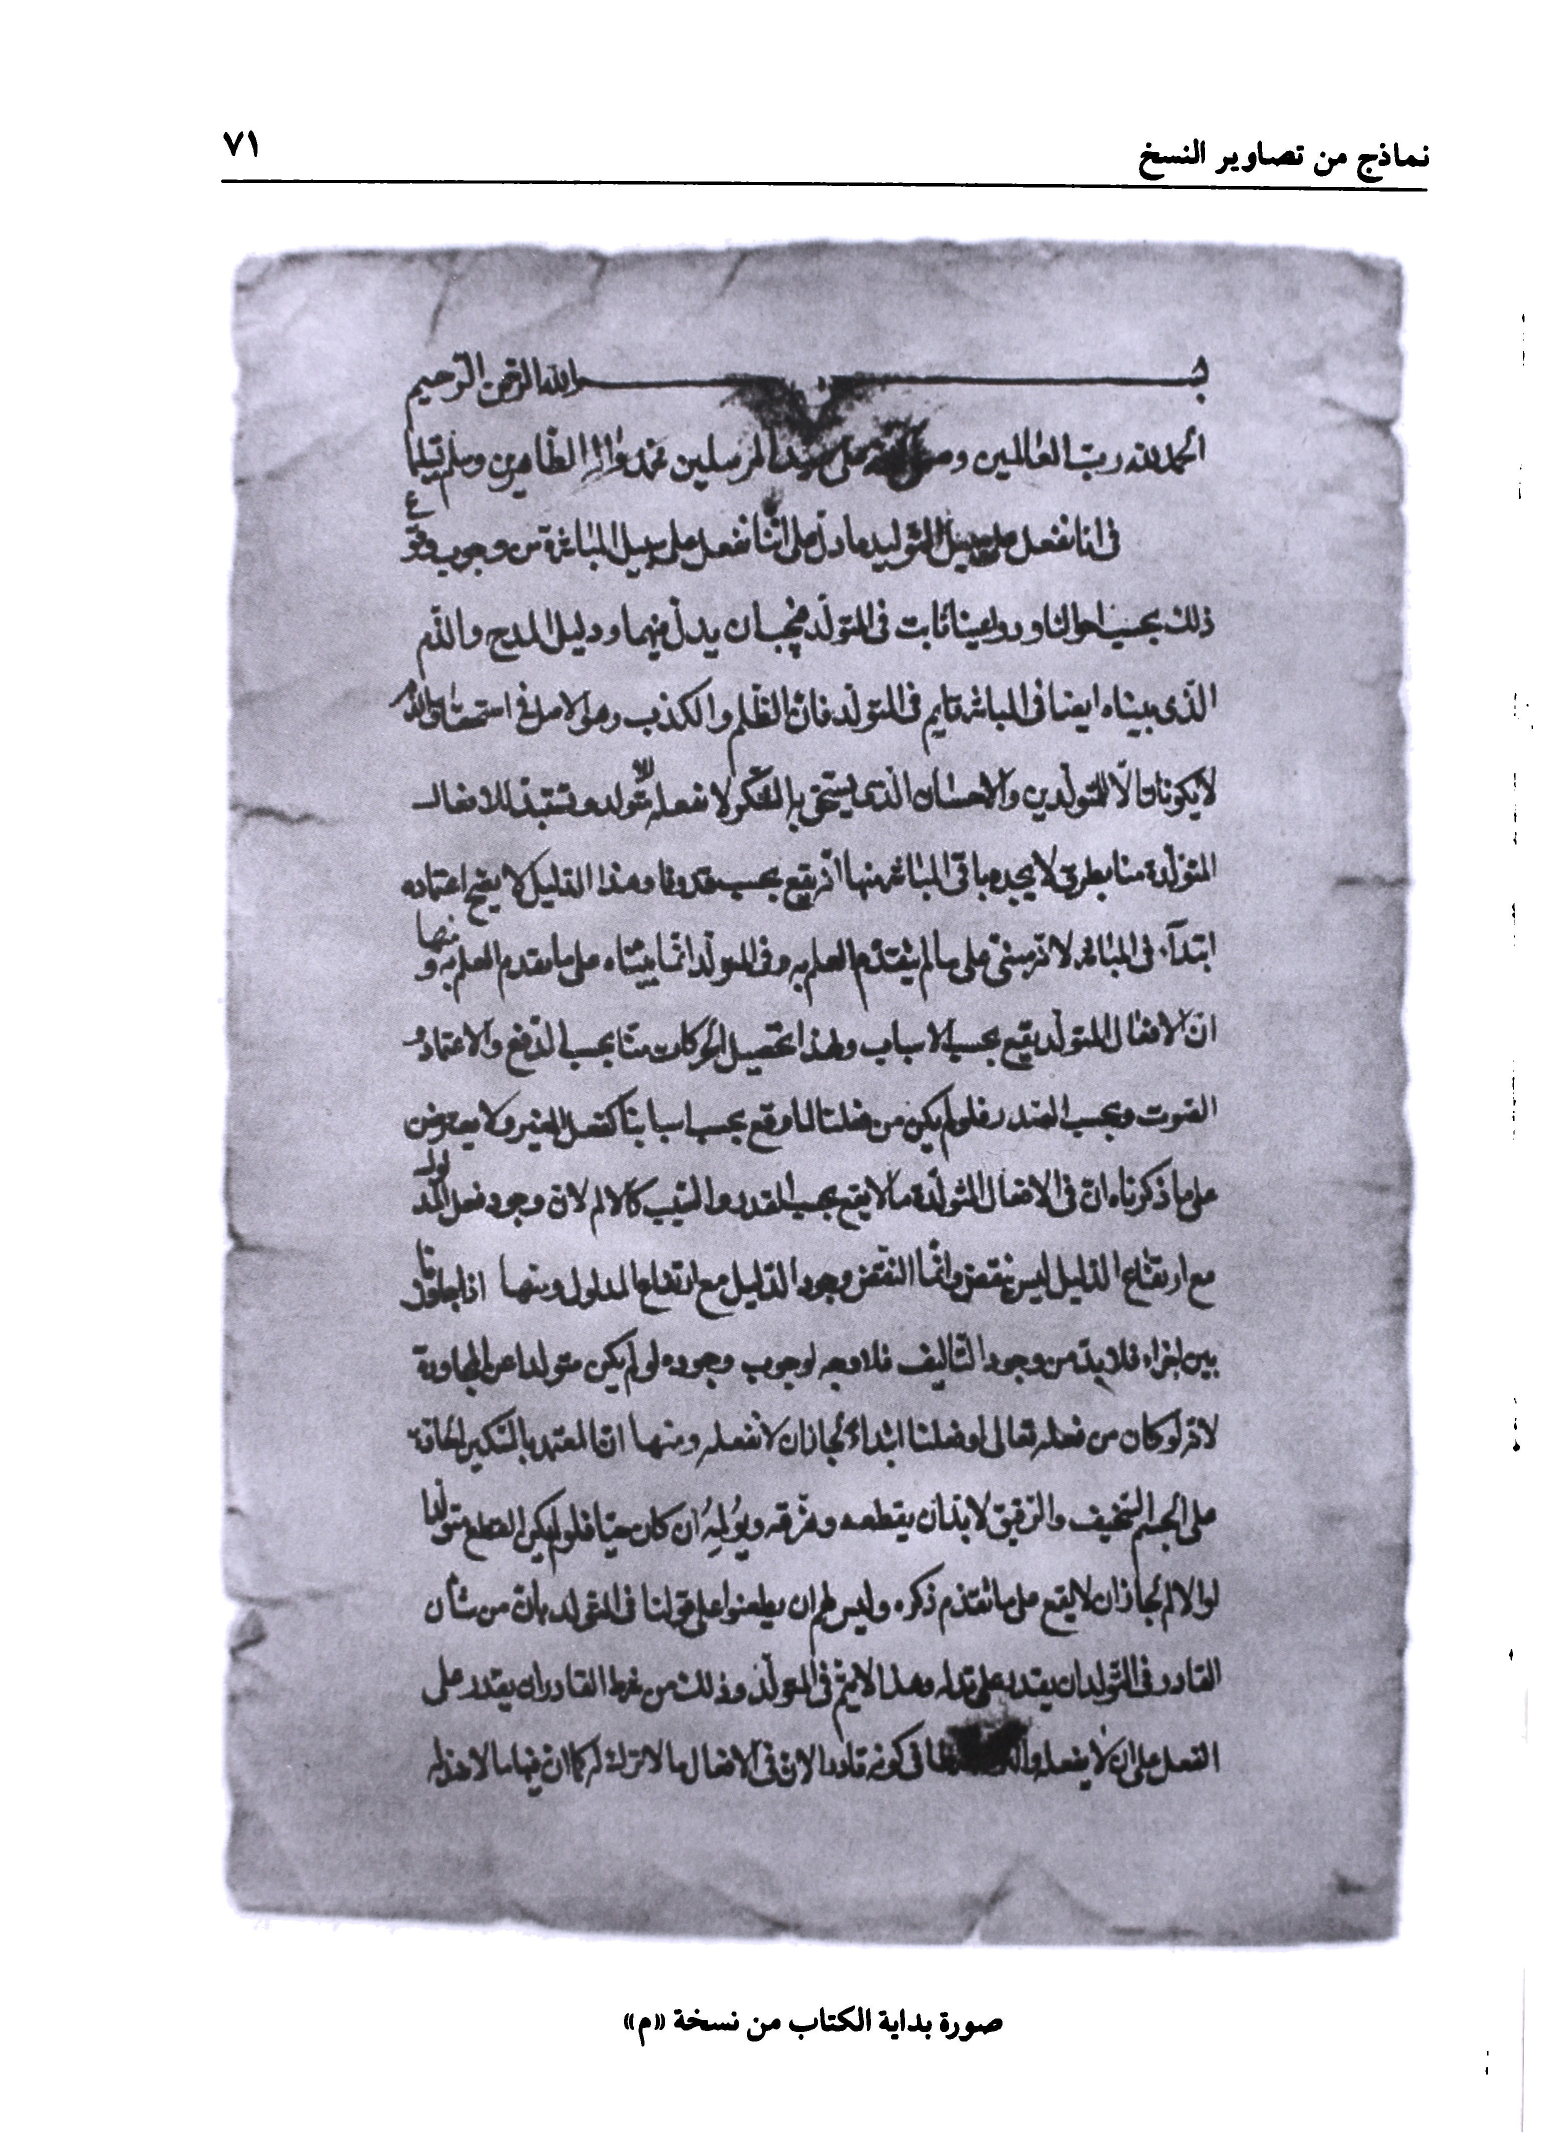 نماذج من تصاوير النسخ
٧١
بسم الله الرحمن الرحيم
الحمد لله رب العالمين وصلى الله على سيد المرسلين محمد واله الطاهرين وسلم تسليما
فى انا نفعل على سبيل التوليد ما دل على اننا نفعل على سبيل المباشرة من وجوب وقوع
ذلك بحسب احوالنا ودواعينا ثابت فى المتولد فيجب ان يدل فيهما ودليل المدح والذم
الذى بيناه ايضا فى المباشر قايم فى المتولد فان الظلم والكذب وهى الاصل فى استحقاق الذم
لا يكونان الا المتولدين والاحسان الذى يستحق به الشكر لا نفعله الا متولدا وتستبد الافعال
المتولدة منا بطرق لا يجده باقى المباشر منها انه يقع بحسب قدرنا وهذا الدليل لا يصح اعتماده
ابتدآء فى المباشر لانه مبنى على ما لم يتقدم العلم به وفى المتولد انما بيناه على ما تقدم العلم به ومنها
ان الافعال المتولد يقع بحسب الاسباب ولهذا تحصيل الحركات منا بحسب الدفع والاعتماد و
الصوت وبحسب القدر فلو لم يكن من فعلنا لما وقع بحسب اسبابنا كفعل الغير ولا يعترض
على ما ذكرناه ان فى الافعال المتولدة ما لا يقع بحسب القدر والسبب كالالم لان وجود فعل المدلول
مع ارتفاع الدليل ليس بنقض وانما النقض وجود الدليل مع ارتفاع المدلول ومنها اذا جاورنا
بين اجزاء فلا بد من وجود التاليف فلا وجه لوجوب وجوده لو لم يكن متولدا عن المجاورة
لانه لو كان من فعله تعالى او فعلنا ابتداء لجاز ان لا نفعله ومنها ان المعتمد بالسكين الحادة
على الجسم السخيف والرقيق لا بد ان يقطعه ويفرقه ويؤلمه ان كان حيا فلو لم يكن القطع متولدا
او الالم لجاز ان لا يقع على ما تقدم ذكره وليس لهم ان يطعنوا على قولنا فى التولد بان من شأن
القادر فى المتولد ان يقدر على تركه وهذا لا يتم فى المتولد وذلك من شرط القادر ان يقدر على
الفعل على ان لا يفعله فى كونه قادرا لان فى الافعال ما لا ترك له كما ان فيها ما لا ضد له
صورة بداية الكتاب من نسخة «م»